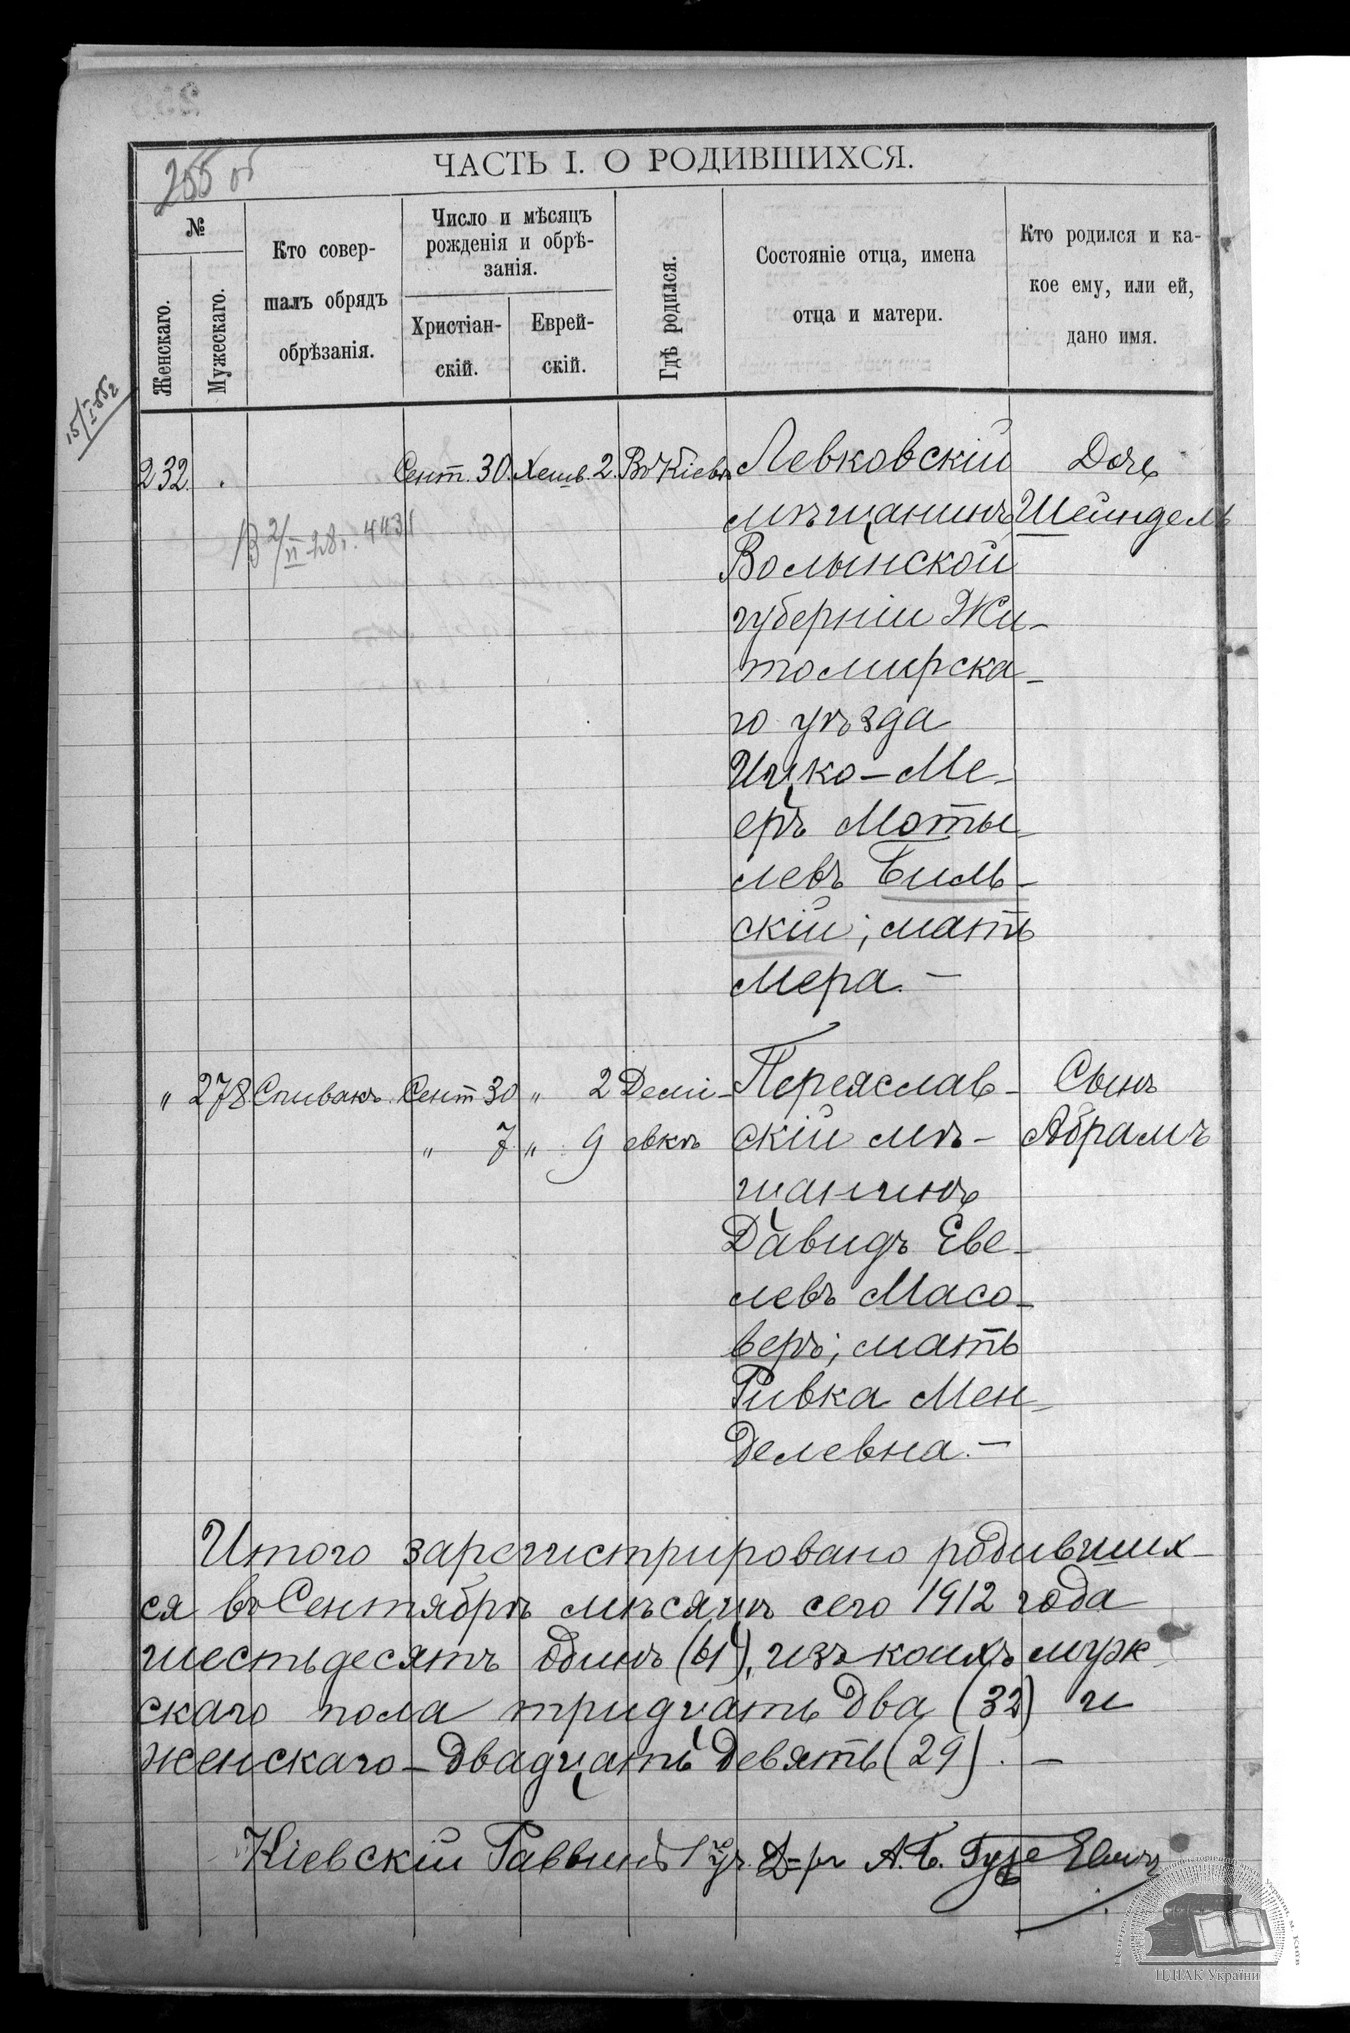 255 об
ЧАСТЬ I. О РОДИВШИХСЯ.
№
Женскаго.
Мужескаго.
Кто совер-
шалъ обрядъ
обрѣзанія.
Число и мѣсяцъ
рожденія и обрѣ-
занія.
Христіан-
скій.
Еврей-
скій.
Гдѣ родился.
Состояніе отца, имена
отца и матери.
Кто родился и ка-
кое ему, или ей,
дано имя.
232. Сент. 30. Хешв. 2. Въ Кіевѣ Левковскій Дочь
мѣщанинъ Шейндель
Волынской
губерніи Жи-
томирска-
го уѣзда
Ицко-Ме-
еръ Моты-
левъ Биль-
скій; мать
Мера. —
" 278 Спивакъ Сент 30 " 2 Демі- Переяслав- Сынъ
" 7 " 9 евкѣ скій мѣ- Абрамъ
щанинъ
Давидъ Еве-
левъ Масо-
веръ; мать
Ривка Мен-
делевна. —
Итого зарегистрировано родивших-
ся въ Сентябрѣ мѣсяцѣ сего 1912 года
шестьдесятъ одинъ (61), изъ коихъ муж-
скаго пола тридцать два (32) и
женскаго — двадцать девять (29). —
Кіевскій Раввинъ Д-ръ А. Б.
ЦДІАК України